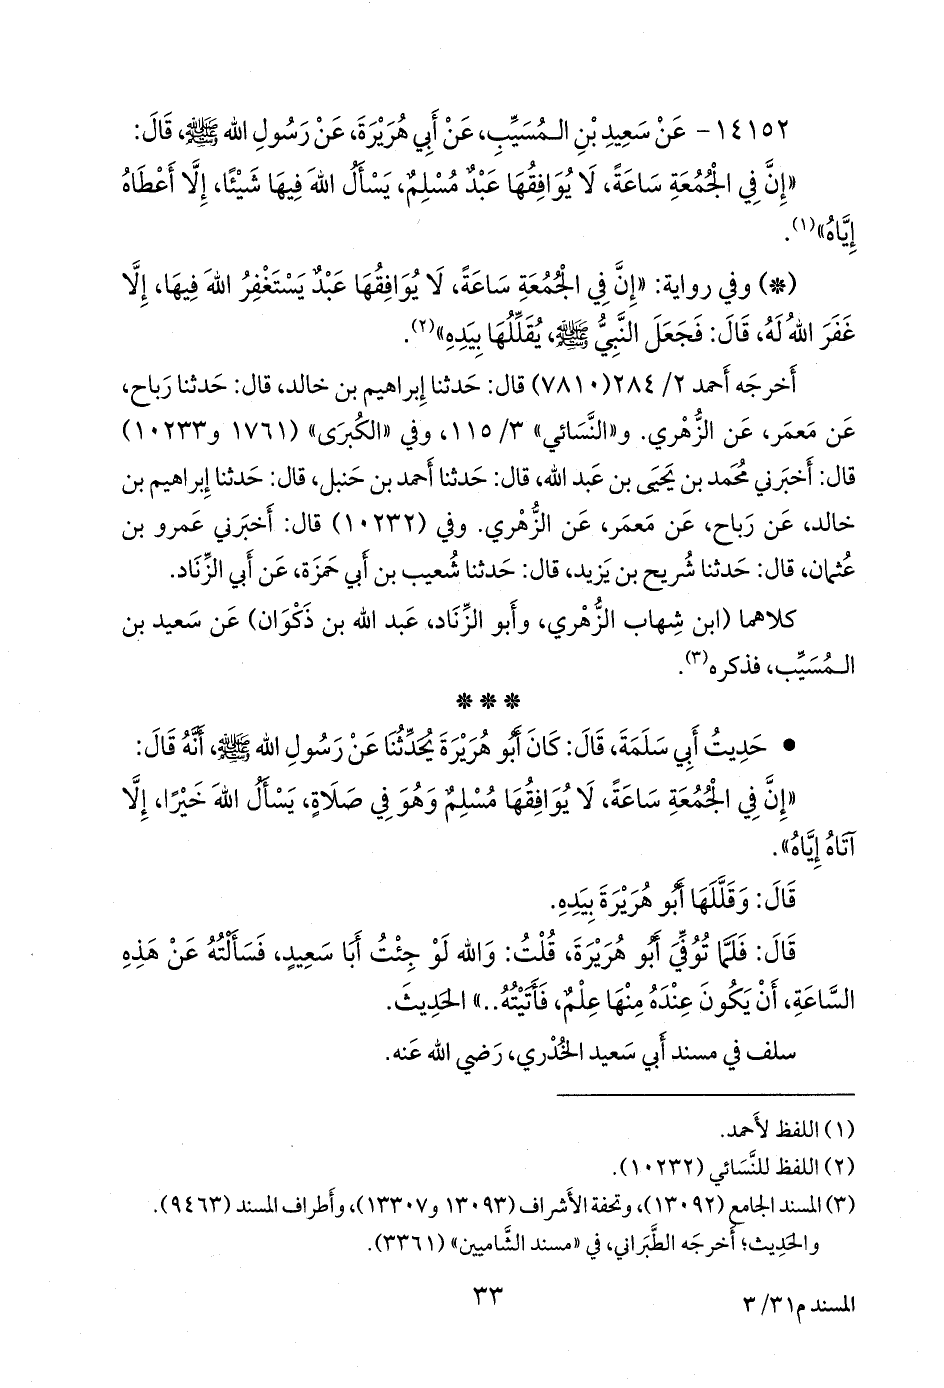 ١٤١٥٢- عَنْ سَعِيدِ بْنِ الـمُسَيِّبِ، عَنْ أَبِي هُرَيْرَةَ، عَنْ رَسُولِ الله ﷺ، قَالَ:
«إِنَّ فِي الْجُمُعَةِ سَاعَةً، لَا يُوَافِقُهَا عَبْدٌ مُسْلِمٌ، يَسْأَلُ اللهَ فِيهَا شَيْئًا، إِلَّا أَعْطَاهُ
إِيَّاهُ»(١).
(*) وفي رواية: «إِنَّ فِي الْجُمُعَةِ سَاعَةً، لَا يُوَافِقُهَا عَبْدٌ يَسْتَغْفِرُ اللهَ فِيهَا، إِلَّا
غَفَرَ اللهُ لَهُ، قَالَ: فَجَعَلَ النَّبِيُّ ﷺ، يُقَلِّلُهَا بِيَدِهِ»(٢).
أَخرجَه أَحمد ٢/ ٢٨٤(٧٨١٠) قال: حَدثنا إِبراهيم بن خالد، قال: حَدثنا رَباح،
عَن مَعمَر، عَن الزُّهْري. و«النَّسَائي» ٣/ ١١٥، وفي «الكُبرَى» (١٧٦١ و١٠٢٣٣)
قال: أَخبَرني مُحمد بن يَحيَى بن عَبد الله، قال: حَدثنا أَحمد بن حَنبل، قال: حَدثنا إِبراهيم بن
خالد، عَن رَباح، عَن مَعمَر، عَن الزُّهْري. وفي (١٠٢٣٢) قال: أَخبَرني عَمرو بن
عُثمان، قال: حَدثنا شُريح بن يَزيد، قال: حَدثنا شُعيب بن أَبي حَمزَة، عَن أَبي الزِّنَاد.
كلاهما (ابن شِهاب الزُّهْري، وأَبو الزِّنَاد، عَبد الله بن ذَكْوَان) عَن سَعيد بن
الـمُسَيِّب، فذكره(٣).
* * *
• حَدِيثُ أَبِي سَلَمَةَ، قَالَ: كَانَ أَبُو هُرَيْرَةَ يُحَدِّثُنَا عَنْ رَسُولِ الله ﷺ، أَنَّهُ قَالَ:
«إِنَّ فِي الْجُمُعَةِ سَاعَةً، لَا يُوَافِقُهَا مُسْلِمٌ وَهُوَ فِي صَلَاةٍ، يَسْأَلُ اللهَ خَيْرًا، إِلَّا
آتَاهُ إِيَّاهُ».
قَالَ: وَقَلَّلَهَا أَبُو هُرَيْرَةَ بِيَدِهِ.
قَالَ: فَلَمَّا تُوُفِّيَ أَبُو هُرَيْرَةَ، قُلْتُ: وَالله لَوْ جِئْتُ أَبَا سَعِيدٍ، فَسَأَلْتُهُ عَنْ هَذِهِ
السَّاعَةِ، أَنْ يَكُونَ عِنْدَهُ مِنْهَا عِلْمٌ، فَأَتَيْتُهُ..» الحَدِيثَ.
سلف في مسند أَبي سَعيد الخُدْري، رَضي الله عَنه.
(١) اللفظ لأَحمد.
(٢) اللفظ للنَّسَائي (١٠٢٣٢).
(٣) المسند الجامع (١٣٠٩٢)، وتحفة الأَشراف (١٣٠٩٣ و١٣٣٠٧)، وأَطراف المسند (٩٤٦٣).
والحَدِيث؛ أَخرجَه الطَّبَراني، في «مسند الشَّاميين» (٣٣٦١).
٣٣
المسند م٣١/ ٣